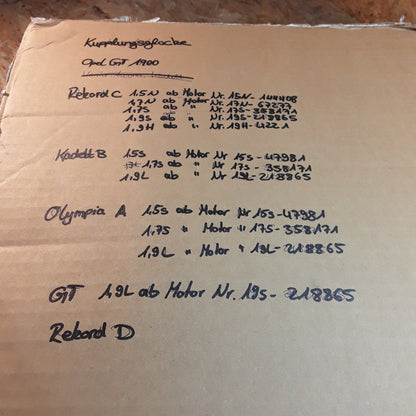 Kupplungsglocke
Opel GT 1900
Rekord C 1.5N ab Motor Nr. 15N - 144408
1,7N ab Motor Nr. 17N - 67277
1,7S ab " Nr. 17S - 358171
1,9S ab " Nr. 19S - 218865
1,9H ab " Nr. 19H - 4221
Kadett B 1.5S ab Motor Nr 15S - 47981
1,7S ab " Nr 17S - 358171
1,9L ab " Nr. 19L - 218865
Olympia A 1,5S ab Motor Nr 15S - 47981
1,7S " Motor " 17S - 358171
1,9L " Motor " 19L - 218865
GT 1,9L ab Motor Nr. 19S - 218865
Rekord D